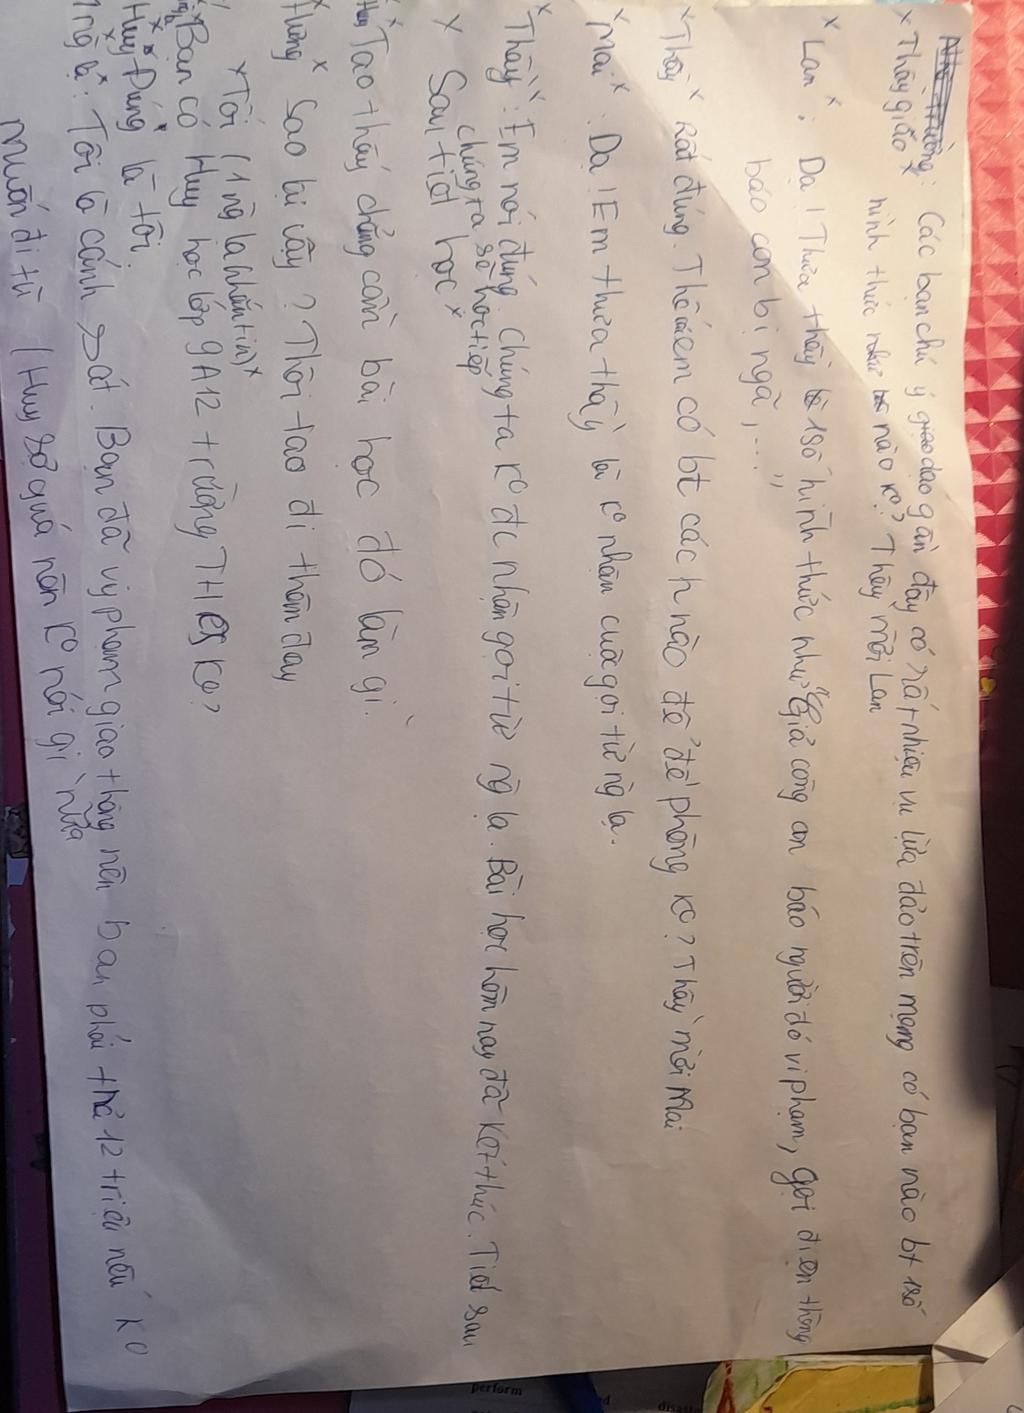 x Thầy giáo x: Các bạn chú ý giao dạo gần đây có rất nhiều vụ lừa đảo trên mạng có bạn nào bt 1 số
hình thức như nào ko? Thầy mời Lan
x Lan x: Dạ! Thưa thầy 1 số hình thức như "Giả công an báo người đó vi phạm, gọi điện thông
báo con bị ngã,..."
x Thầy x Rất đúng. Thế các em có bt các nào để đề phòng ko? Thầy mời Mai
x Mai x: Dạ! Em thưa thầy là ko nhận cuộc gọi từ ng lạ.
x Thầy x: Em nói đúng. Chúng ta ko đc nhận gọi từ ng lạ. Bài học hôm nay đã kết thúc. Tiết sau
chúng ta sẽ học tiếp
x Sau tiết học x
x Tao thấy chẳng cần bài học đó làm gì.
Hưng x Sao lại vậy? Thôi tao đi thăm đay
x Tối (1 ng lạ nhắn tin) x
x Bạn có Huy học lớp 9A12 trường THCS ko?
Huy x Đúng là tôi.
1 ng lạ x: Tôi là cảnh sát. Bạn đã vi phạm giao thông nên bạn phải trả 12 triệu nếu ko
muốn đi tù (Huy sợ quá nên ko nói gì nữa
perform